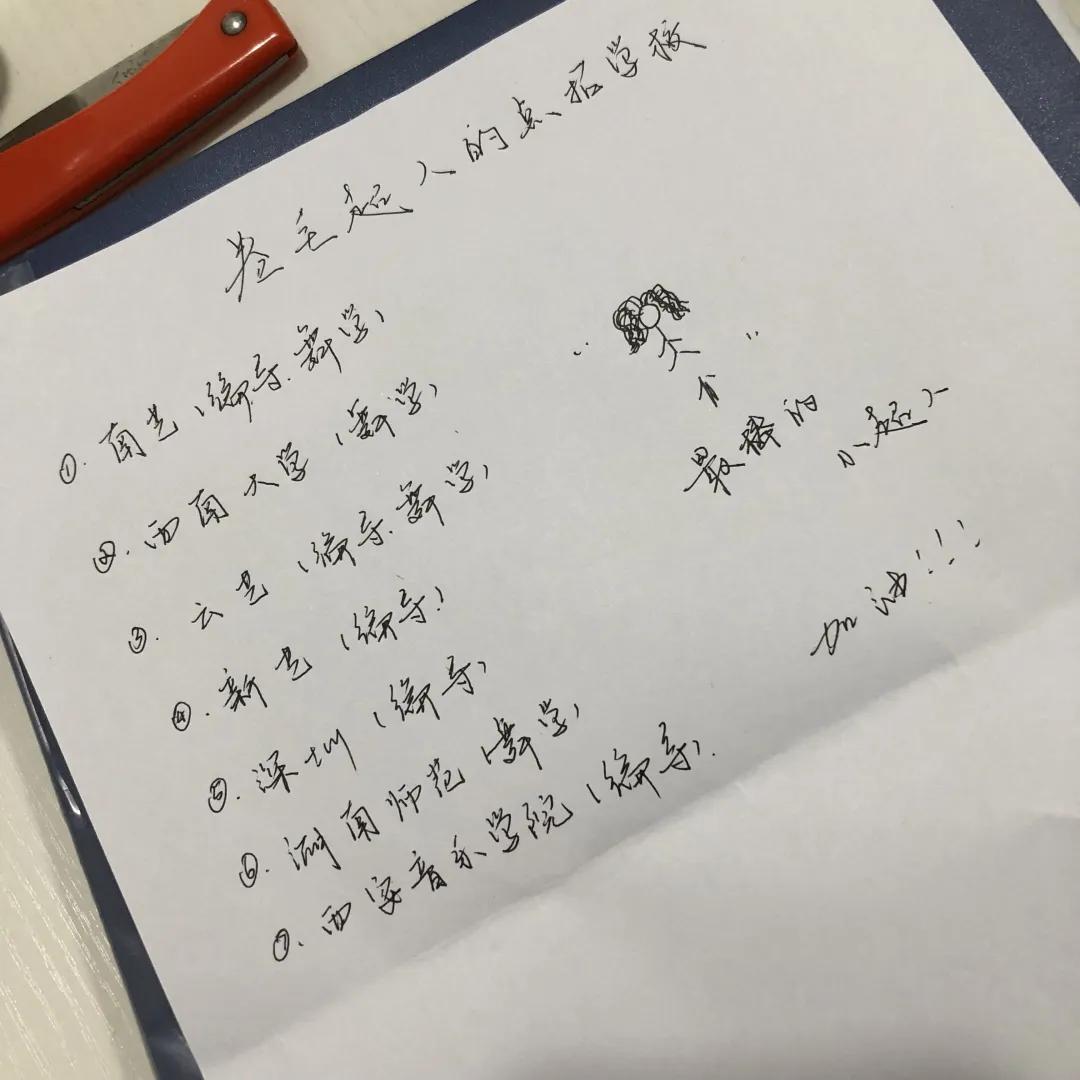 卷毛超人的点招学校
①. 南艺(编导.舞学)
②. 西南大学(舞学)
③. 云艺(编导.舞学)
④. 新艺(编导)
⑤. 深圳(编导)
⑥. 湖南师范(舞学)
⑦. 西安音乐学院(编导).
最棒的
小超人
加油!!!